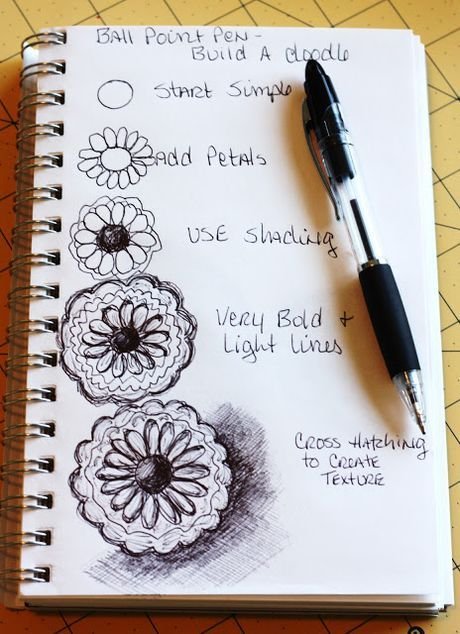 Ball Point Pen -
Build A doodle
Start Simple
add Petals
USE Shading
Very Bold +
Light lines
Cross Hatching
to Create
Texture